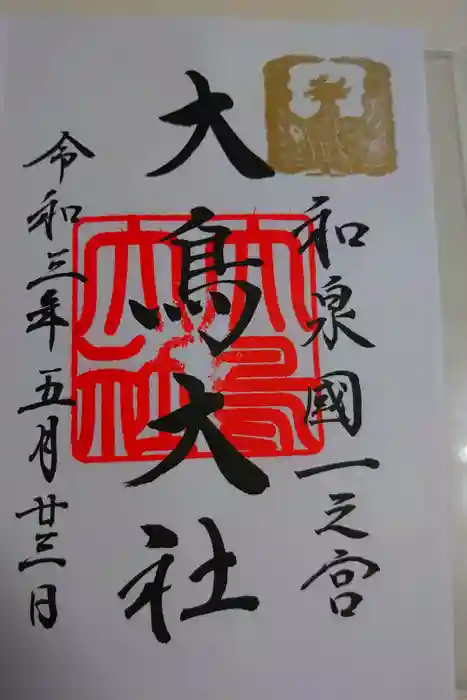 和泉國一之宮
大鳥大社
大鳥大社
令和三年五月廿三日